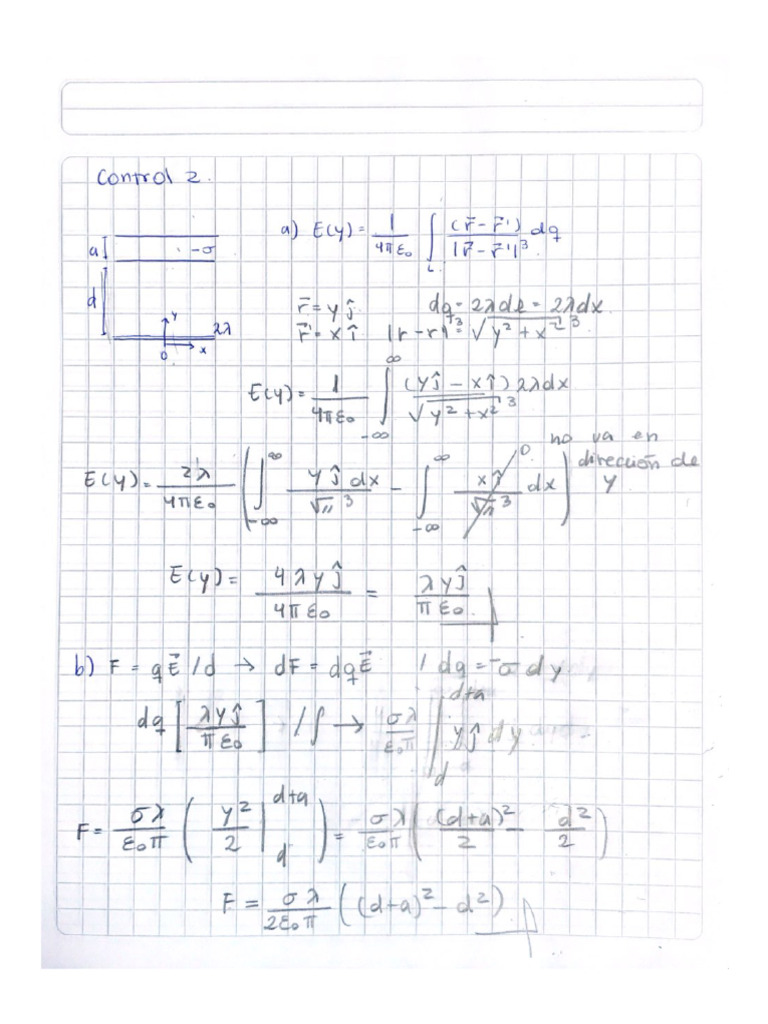 Control 2.
a
-σ
d
y
2λ
0
x
a) E(y) = 1/4πε₀ ∫_L (r⃗ - r⃗')/|r⃗ - r⃗'|³ dq
r⃗ = y ĵ
dq = 2λdl = 2λdx
r⃗' = x î
|r - r'|³ = √(y² + x²)³
E(y) = 1/4πε₀ ∫_{-∞}^{∞} (yĵ - xî) 2λdx / √(y² + x²)³
E(y) = 2λ/4πε₀ ( ∫_{-∞}^{∞} yĵ dx / √〃³ - ∫_{-∞}^{∞} xî / √〃³ dx ) 0
no va en
dirección de
y
E(y) = 4λyĵ/4πε₀ = λyĵ/πε₀.
b) F = qE⃗ /d → dF = dqE⃗ / dq = -σdy
dq [λyĵ/πε₀] /∫ → σλ/ε₀π ∫_d^{d+a} yĵ dy
F = σλ/ε₀π ( y²/2 |_d^{d+a} ) = σλ/ε₀π ( (d+a)²/2 - d²/2 )
F = σλ/2ε₀π ((d+a)² - d²)